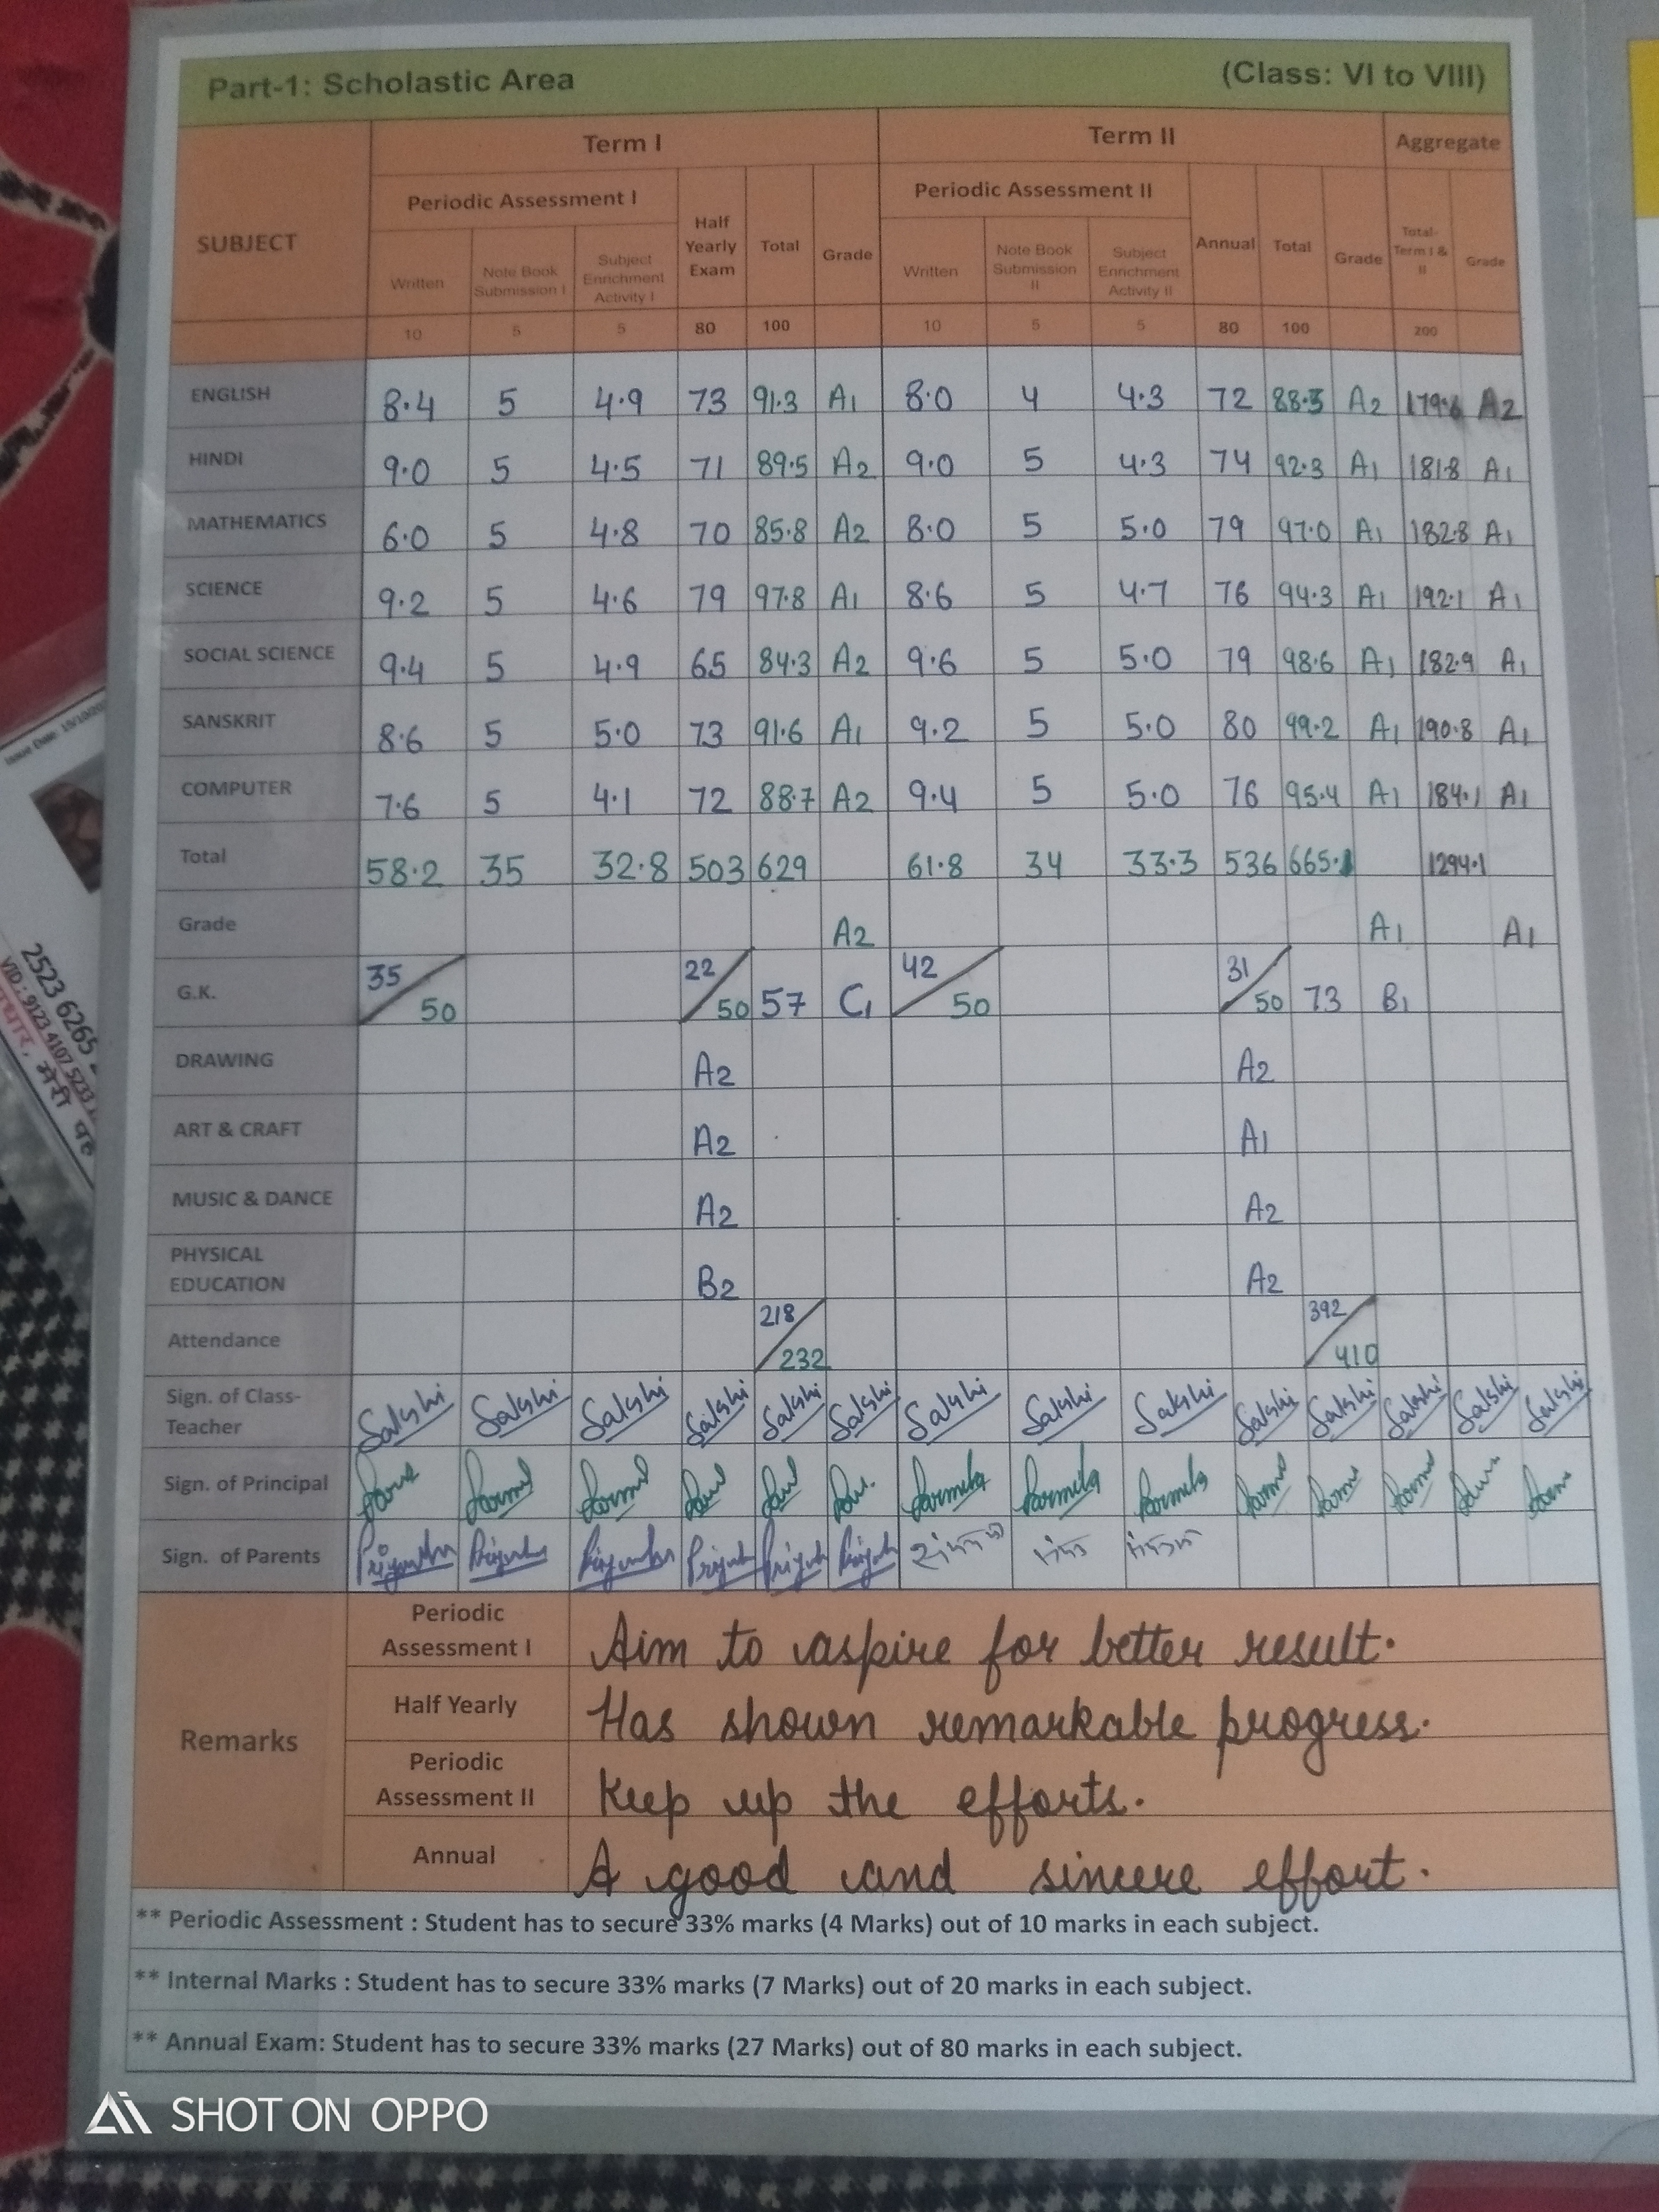 Part-1: Scholastic Area (Class: VI to VIII)
SUBJECT Term I Term II Aggregate
Periodic Assessment I Half Yearly Exam Total Grade Periodic Assessment II Annual Total Grade Total Term I & II Grade
Written Note Book Submission I Subject Enrichment Activity I Written Note Book Submission II Subject Enrichment Activity II
10 5 5 80 100 10 5 5 80 100 200
ENGLISH 8.4 5 4.9 73 91.3 A1 8.0 4 4.3 72 88.3 A2 179.6 A2
HINDI 9.0 5 4.5 71 89.5 A2 9.0 5 4.3 74 92.3 A1 181.8 A1
MATHEMATICS 6.0 5 4.8 70 85.8 A2 8.0 5 5.0 79 97.0 A1 182.8 A1
SCIENCE 9.2 5 4.6 79 97.8 A1 8.6 5 4.7 76 94.3 A1 192.1 A1
SOCIAL SCIENCE 9.4 5 4.9 65 84.3 A2 9.6 5 5.0 79 98.6 A1 182.9 A1
SANSKRIT 8.6 5 5.0 73 91.6 A1 9.2 5 5.0 80 99.2 A1 190.8 A1
COMPUTER 7.6 5 4.1 72 88.7 A2 9.4 5 5.0 76 95.4 A1 184.1 A1
Total 58.2 35 32.8 503 629 61.8 34 33.3 536 665.1 1294.1
Grade A2 A1 A1
G.K. 35/50 22/50 57 C1 42/50 31/50 73 B1
DRAWING A2 A2
ART & CRAFT A2 A1
MUSIC & DANCE A2 A2
PHYSICAL EDUCATION B2 A2
Attendance 218/232 392/410
Sign. of Class-Teacher Sakshi Sakshi Sakshi Sakshi Sakshi Sakshi Sakshi Sakshi Sakshi Sakshi Sakshi Sakshi Sakshi Sakshi
Sign. of Principal
Sign. of Parents
Remarks
Periodic Assessment I Aim to aspire for better result.
Half Yearly Has shown remarkable progress.
Periodic Assessment II Keep up the efforts.
Annual A good and sincere effort.
** Periodic Assessment : Student has to secure 33% marks (4 Marks) out of 10 marks in each subject.
** Internal Marks : Student has to secure 33% marks (7 Marks) out of 20 marks in each subject.
** Annual Exam: Student has to secure 33% marks (27 Marks) out of 80 marks in each subject.
SHOT ON OPPO